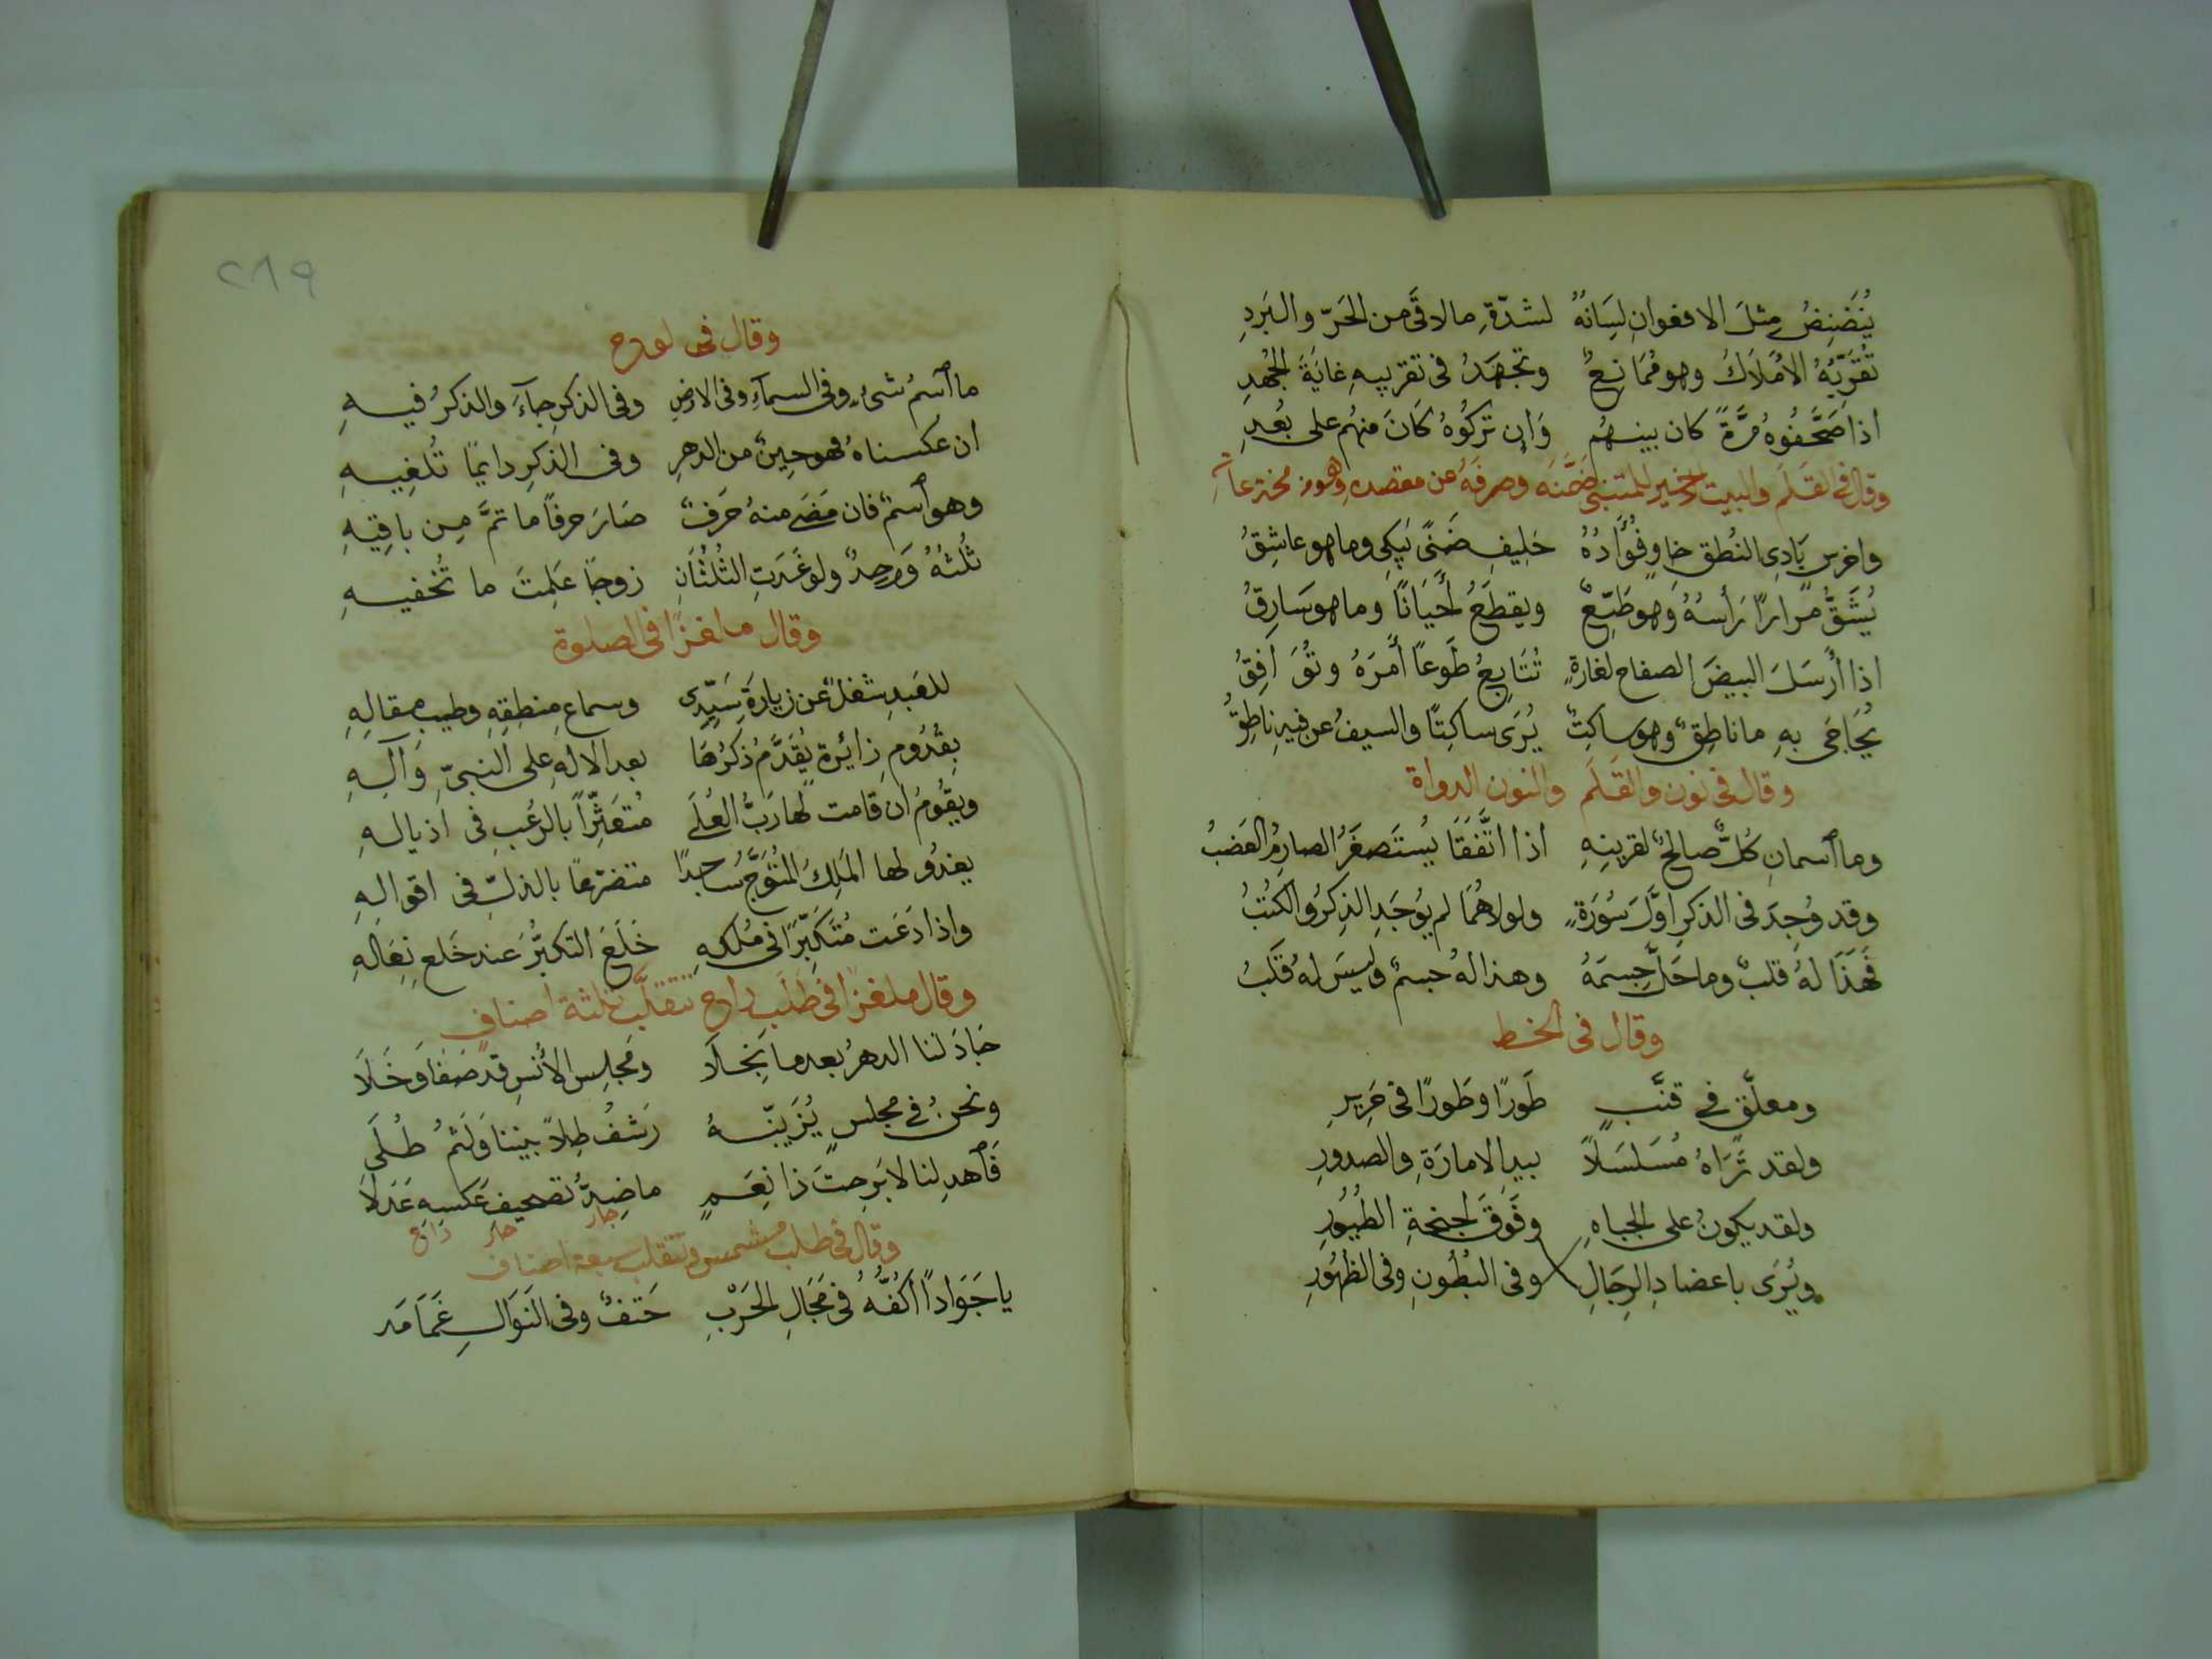 يُنَضنِضُ مثلَ الافعوانِ لِسَانهُ لشدّةِ مالاقَى من الحَرّ والبَردِ
تُقَرّبُهُ الاَملاكُ وهو مُمَانِعٌ وتجهَدُ فى تقريبهِ غايَةَ الجُهدِ
اذا صَحَّفُوهُ مرَّةً كان بينهُم وَان تركُوهُ كانَ منهُم على بُعدِ
وقال فى القَلَم والبيت الاخير للمتنبى ضمَّنَه وصرفَهُ عن مقصده وهو من مخترعاته
واخرس بَادِى النُطقِ خاوٍ فُؤَادُهُ حَليفِ ضَنًى يَبكِى وما هو عاشِقُ
يُشَقُّ مرارًا رَأسُهُ وَهو طَيّعٌ ويقطَعُ أَحيَانًا وما هو سَارِقُ
اذا أَرسَلَ البيضَ الصفاح لغارةٍ تُتَابِعُ طَوعًا أَمرَهُ وتُوَافِقُ
يُحَاجَى بهِ ما ناطِقٌ وهو ساكِتٌ يُرَى ساكتًا والسيفُ عن فيهِ ناطِقُ
وقال فى نون والقَلَم والنون الدواة
وما ٱسمانِ كُلٌّ صالحٌ لقرينِهِ اذا اتَّفَقَا يُستَصغَرُ الصارِمُ العَضبُ
وقد وُجِدَ فى الذكرِ اوَّلَ سُورَةٍ ولولاهُمَا لم يُوجَدِ الذِكرُ والكُتبُ
فَهَذَا لهُ قلبٌ وما حَلَّ جِسمَهُ وهذا لهُ جسمٌ وليسَ لهُ قَلبُ
وقال فى الخط
ومعلَّق فى قنَّبٍ طَورًا وطَورًا فى حَرِيرِ
ولقد تَرَاهُ مُسَلسَلاً بيدِ الامارَةِ والصدورِ
ولقد يكونُ على الجباهِ وفَوقَ اجنحةِ الطُيُورِ
ويُرَى باعضادِ الرِجَالِ وفى البُطُونِ وفى الظهُورِ
٢٨٩
وقال فى لوح
ما ٱسمُ شىءٍ وفى السمآءِ وفى الارضِ وفى الذكرِ جآءَ والذكرُ فيهِ
ان عكسناهُ فهو حِينٌ من الدهرِ وفى الذكرِ دايمًا تُلغِيهِ
وهو ٱسمٌ فان مَضَى منهُ حَرفٌ صَارَ حرفًا ما تمَّ مِن باقِيهِ
ثُلثُهُ وَاحِدٌ ولو غَدَتِ الثُلثَانِ زوجًا عَلِمتَ ما تُخفيهِ
وقال ملغزًا فى الصلوة
للعَبدِ شغلٌ عن زيارَةِ سَيّدِى وسماعِ مِنطِقِهِ وطيبِ مقالِهِ
بِقُدُومِ زائرة يُقَدَّمُ ذكرُهَا بعد الالهِ على النبىّ وآلهِ
ويقُومُ ان قامت لها رَبُّ العُلَى مُتعَثِّرًا بالرُعبِ فى اذيالهِ
يغدُو لها المَلِكُ المُتَوَّجُ سَاجدًا متضرّعًا بالذلِّ فى اقوالهِ
واذا دَعَت مُتَكَبّرًا فى مُلكهِ خَلَعَ التكبُّرَ عند خَلعِ نِعَالهِ
وقال ملغزًا فى طلَب راح تتقلَّب ثلثة اصناف
جَادَ لنا الدهرُ بعد ما بَخلاَ ومَجلِس الاُنسِ قد صَفَا وخَلاَ
ونحنُ فى مجلسٍ يُزَيّنهُ رَشفُ طِلاً بيننا وَلثمُ طُلَى
فَٱهدِ لنا لابَرِحتَ ذا نِعَمٍ ما ضِدُّ تصحيفِ عَكسِهِ عَدلاَ
جار حار راح
وقال فى طلب مشمس وتتقلب سبعة اصناف
يا جَوَادًا اكُفُّهُ فى مَجَالِ الحَرْبِ حَتفٌ وفى النَوَالِ غَمَامَه